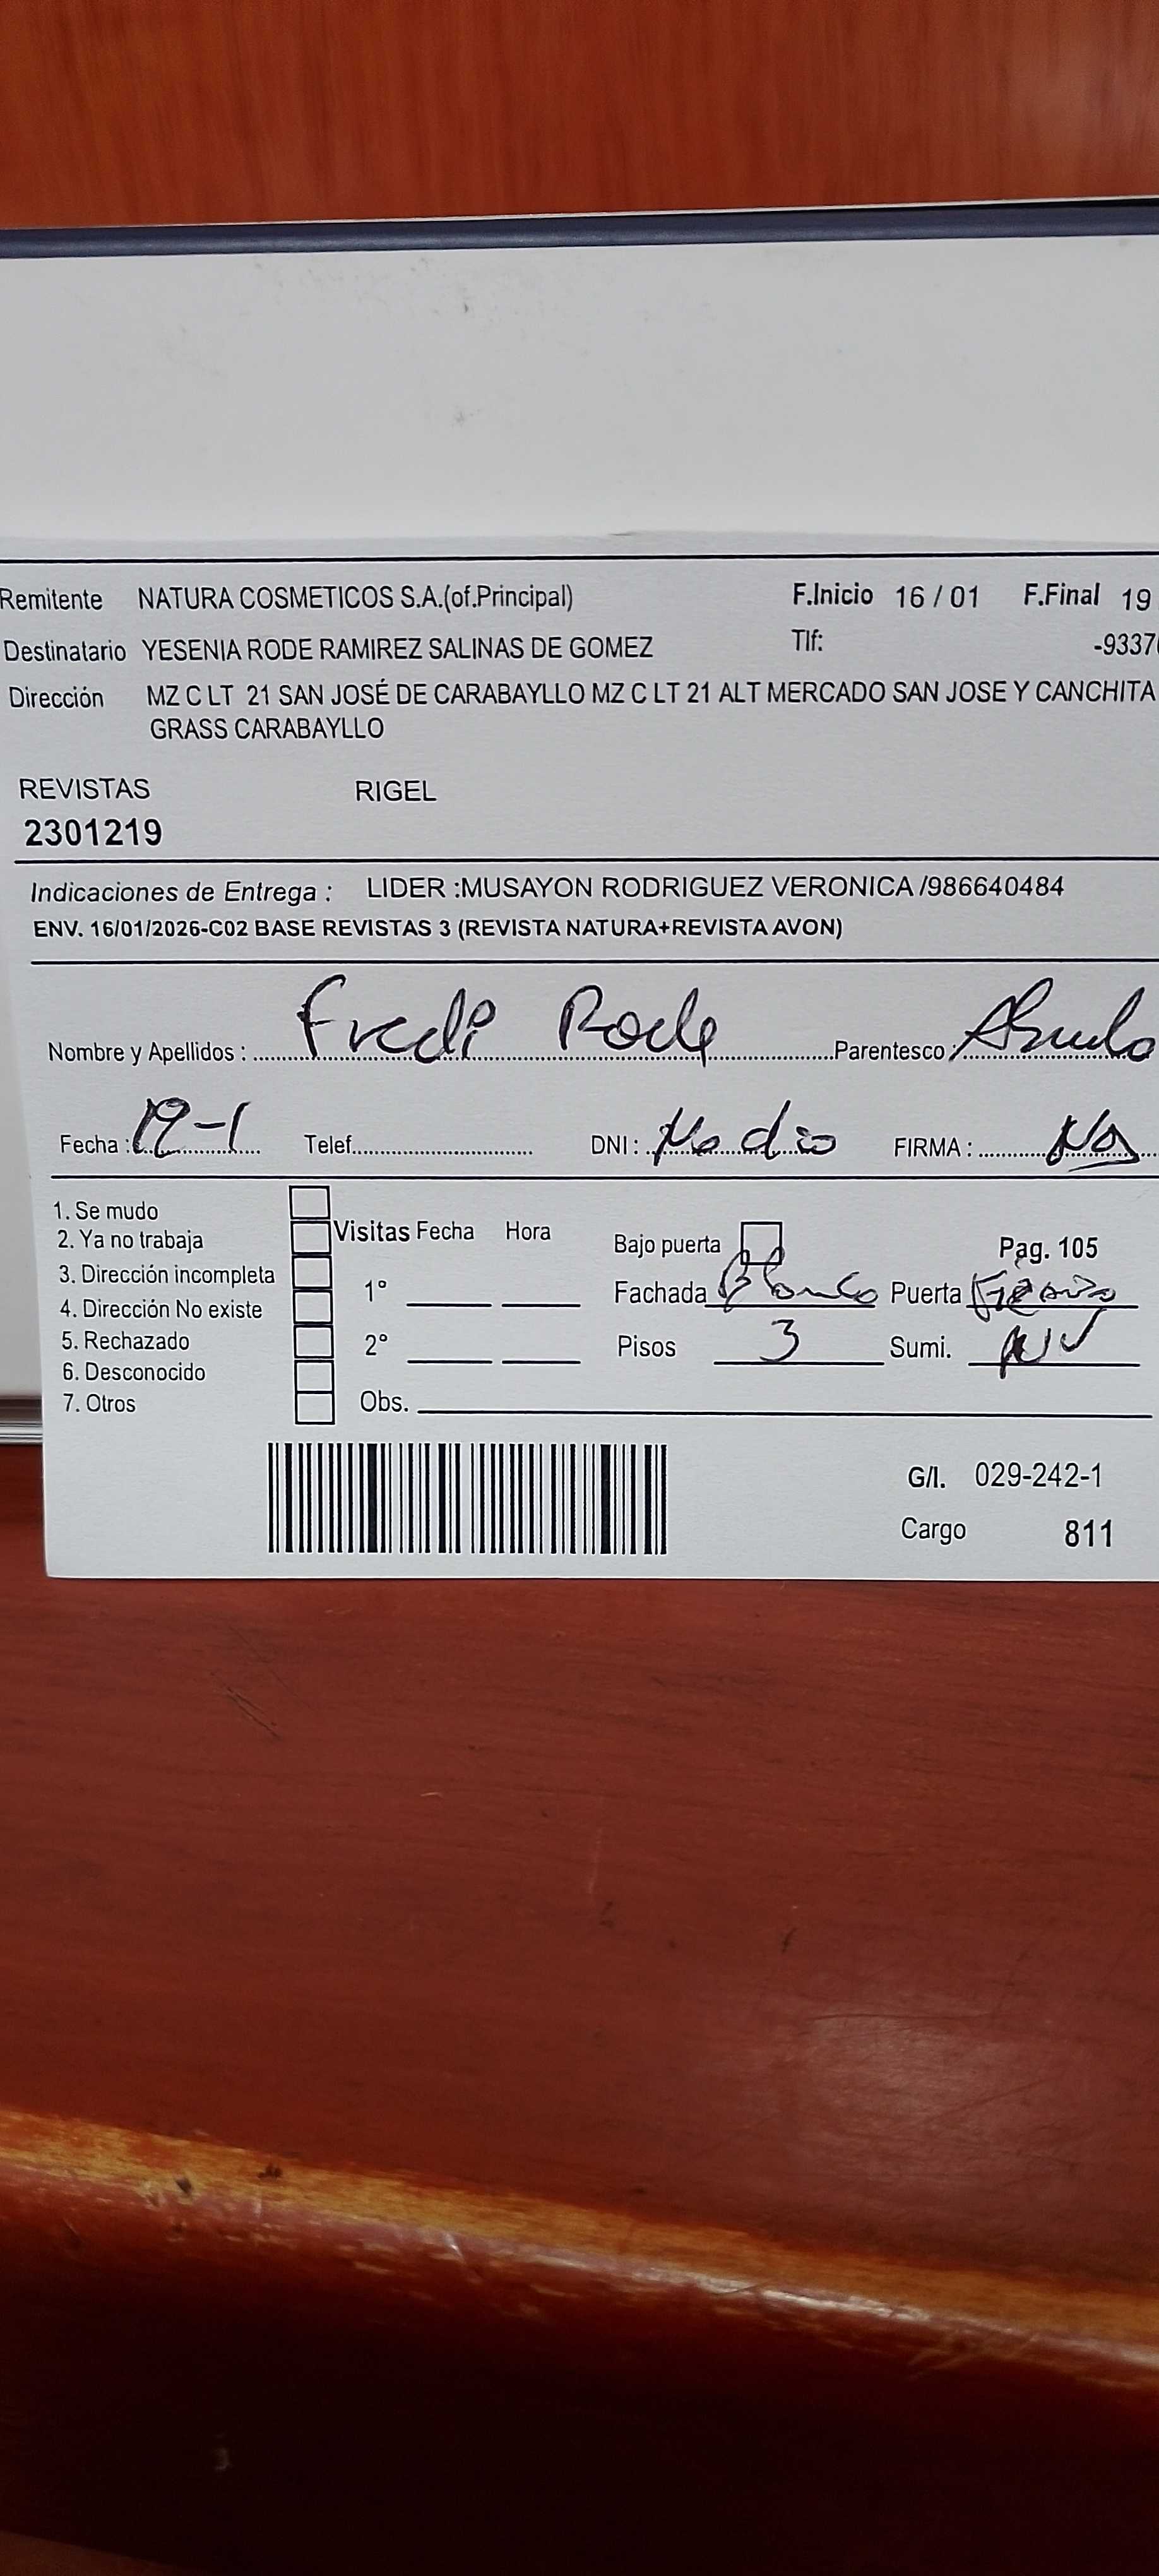 Remitente NATURA COSMETICOS S.A.(of.Principal) F.Inicio 16 / 01 F.Final 19
Destinatario YESENIA RODE RAMIREZ SALINAS DE GOMEZ Tlf: -9337
Dirección MZ C LT 21 SAN JOSÉ DE CARABAYLLO MZ C LT 21 ALT MERCADO SAN JOSE Y CANCHITA
GRASS CARABAYLLO
REVISTAS RIGEL
2301219
Indicaciones de Entrega : LIDER :MUSAYON RODRIGUEZ VERONICA /986640484
ENV. 16/01/2026-C02 BASE REVISTAS 3 (REVISTA NATURA+REVISTA AVON)
Nombre y Apellidos : Fredi Rode Parentesco :
Fecha : 19-1 Telef. DNI : No dio FIRMA :
1. Se mudo
2. Ya no trabaja Visitas Fecha Hora Bajo puerta Pag. 105
3. Dirección incompleta 1° Fachada Blanco Puerta
4. Dirección No existe
5. Rechazado 2° Pisos 3 Sumi.
6. Desconocido
7. Otros Obs.
G/l. 029-242-1
Cargo 811